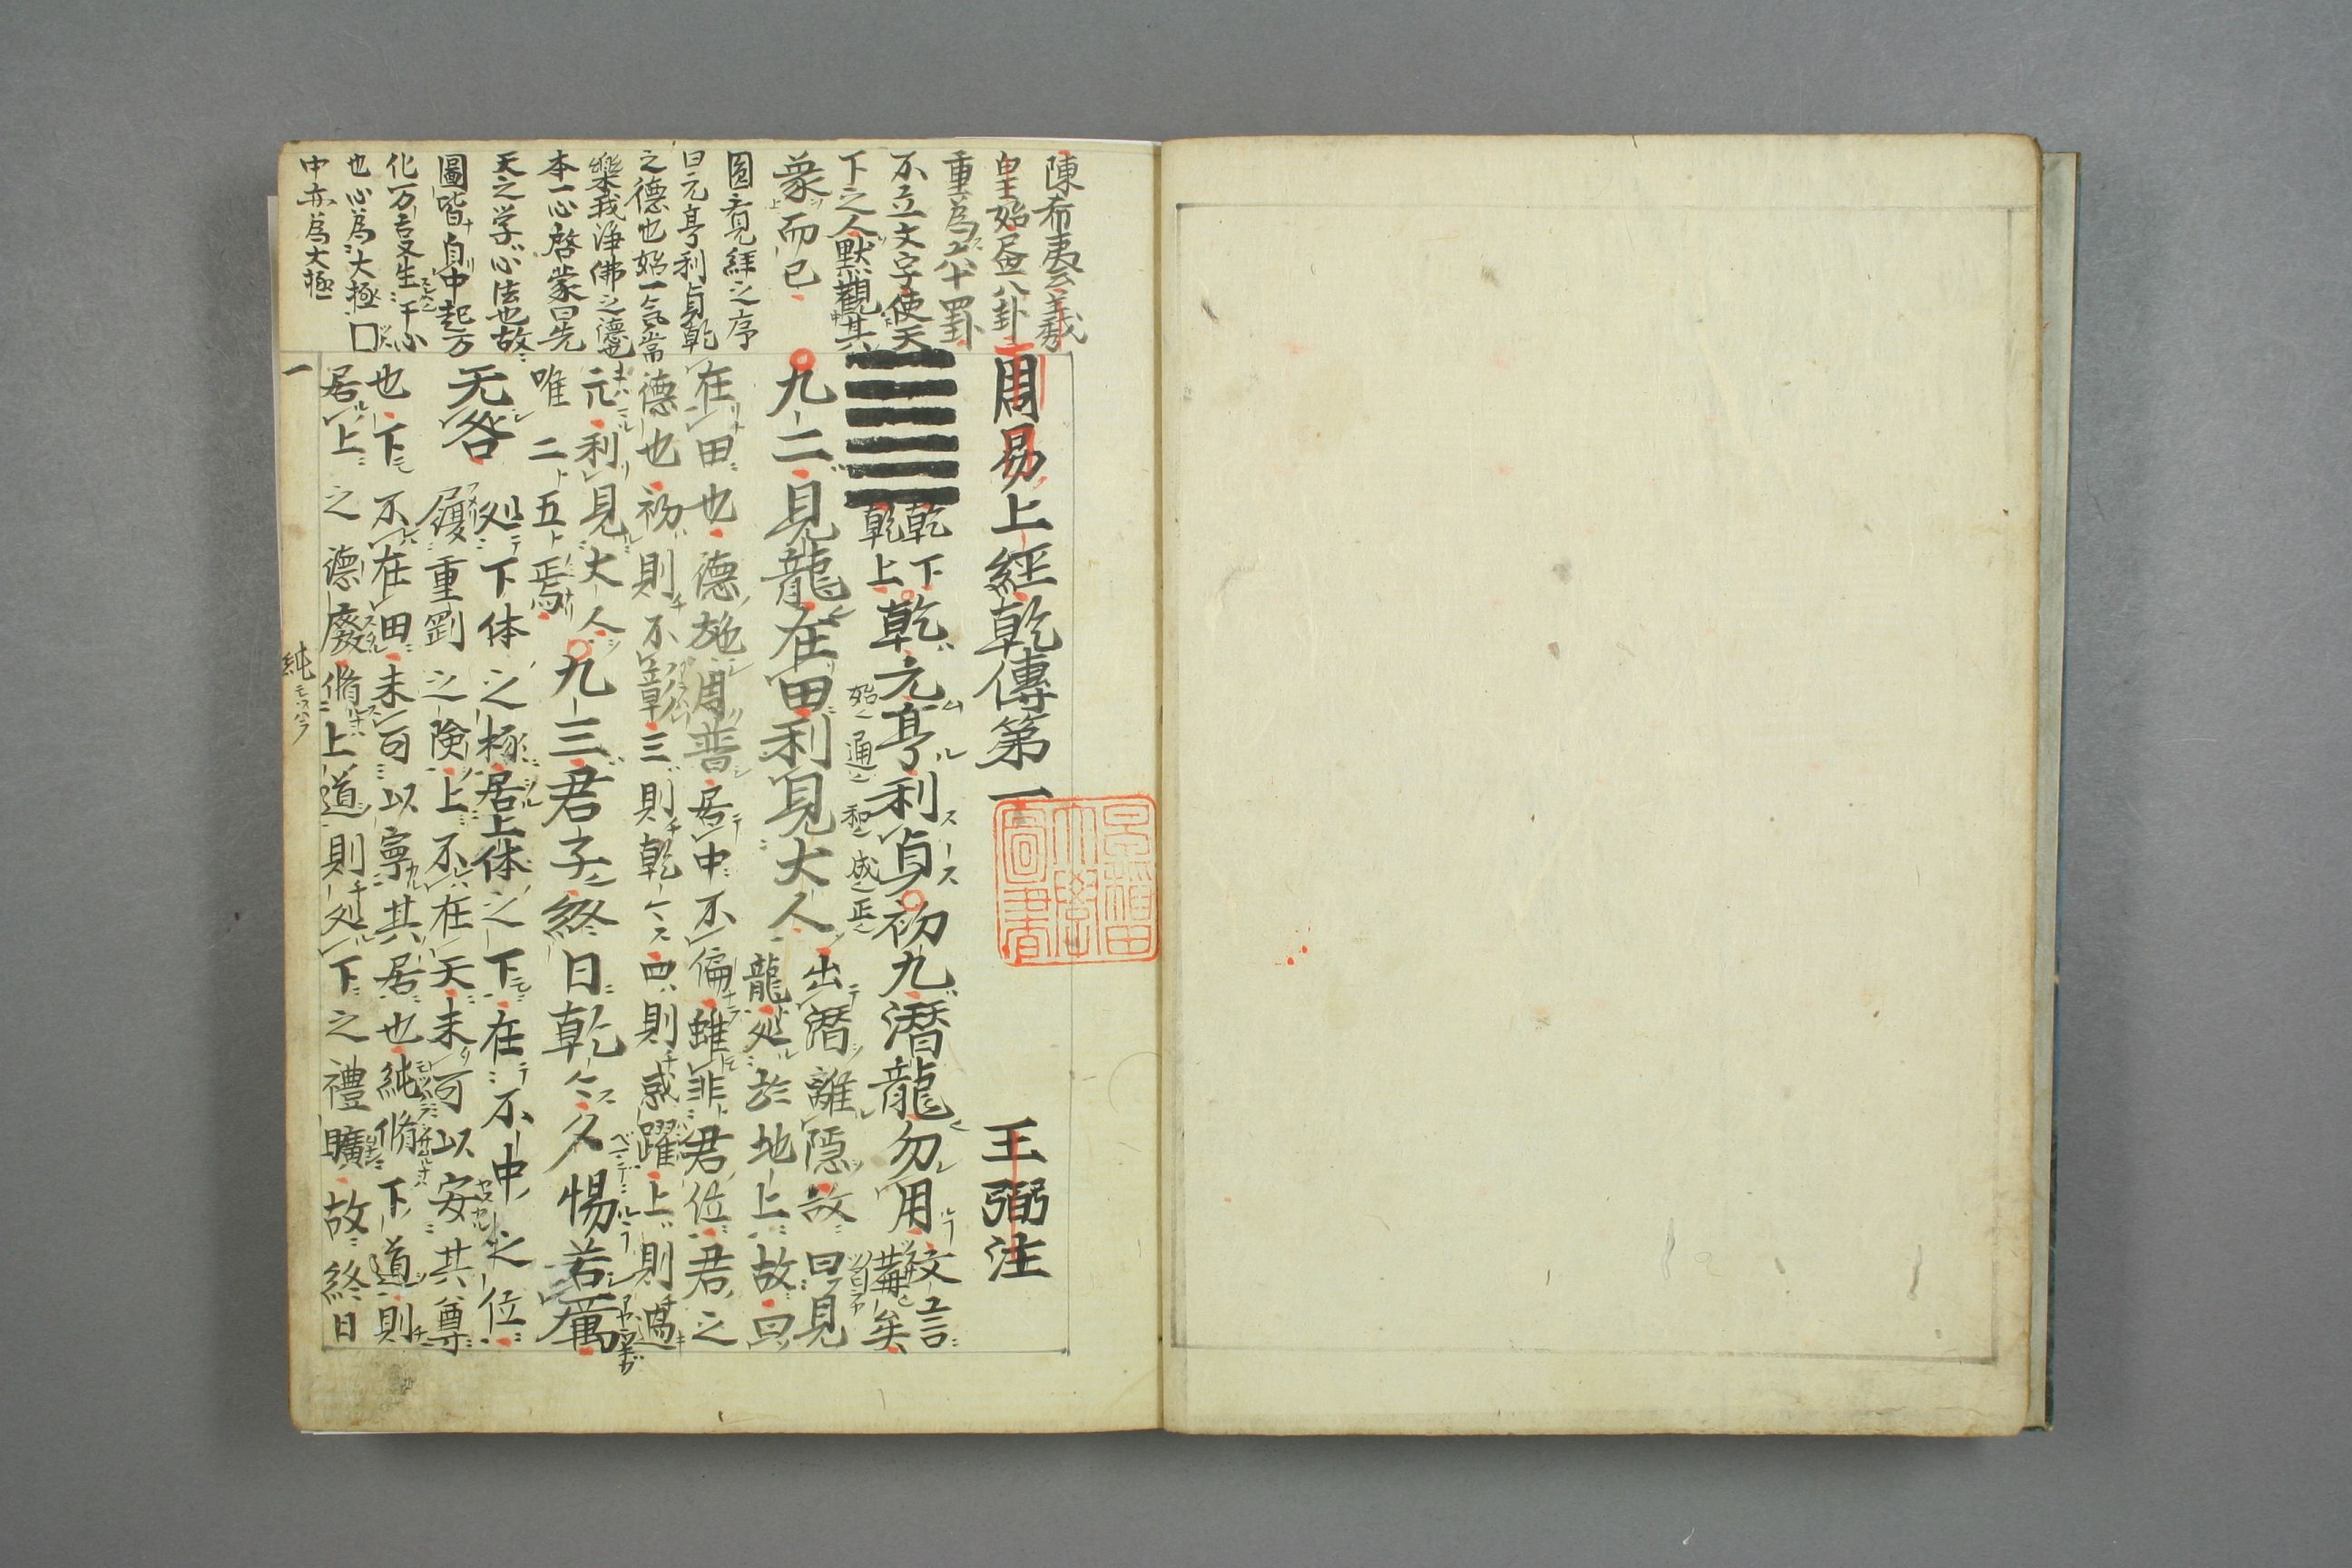 陳希夷云羲
皇始畫八卦
重爲六十四卦
不立文字使天
下之人默觀其
象而已
圓覚経之序
曰元亨利貞乾
之德也始一气常
樂我浄佛之德也
本一心啓蒙曰先
天之学心法也故
圖皆自中起万
化万吉又生于心
也心爲大極囗
中亦爲大極
周易上經乾傳第一 王弼注
乾下
乾上
乾元亨利貞初九潜龍勿用
文言
備矣
始通和成正
九二見龍在田利見大人
出潜離隠故曰見
龍処於地上故曰
在田也德施周普居中不偏雖非君位君之
德也初則不彰三則乾々四則惑躍上則過
元利見大人
唯二五焉
九三君子終日乾々夕惕若厲
无咎
処下体之極居上体之下在不中之位
履重剛之険上不在天未可以安其尊
也下不在田未可以寧其居也純脩下道則
居上之德廢脩上道則処下之禮曠故終日
純モツハラ
一
早稲田
大學
圖書